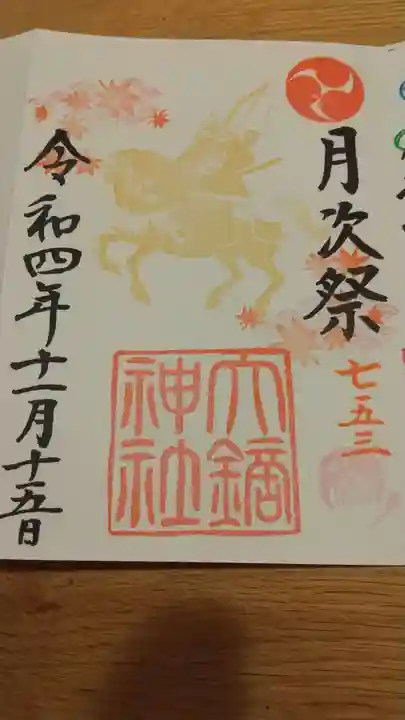 月次祭
七五三
大鏑
神社
令和四年十一月十五日